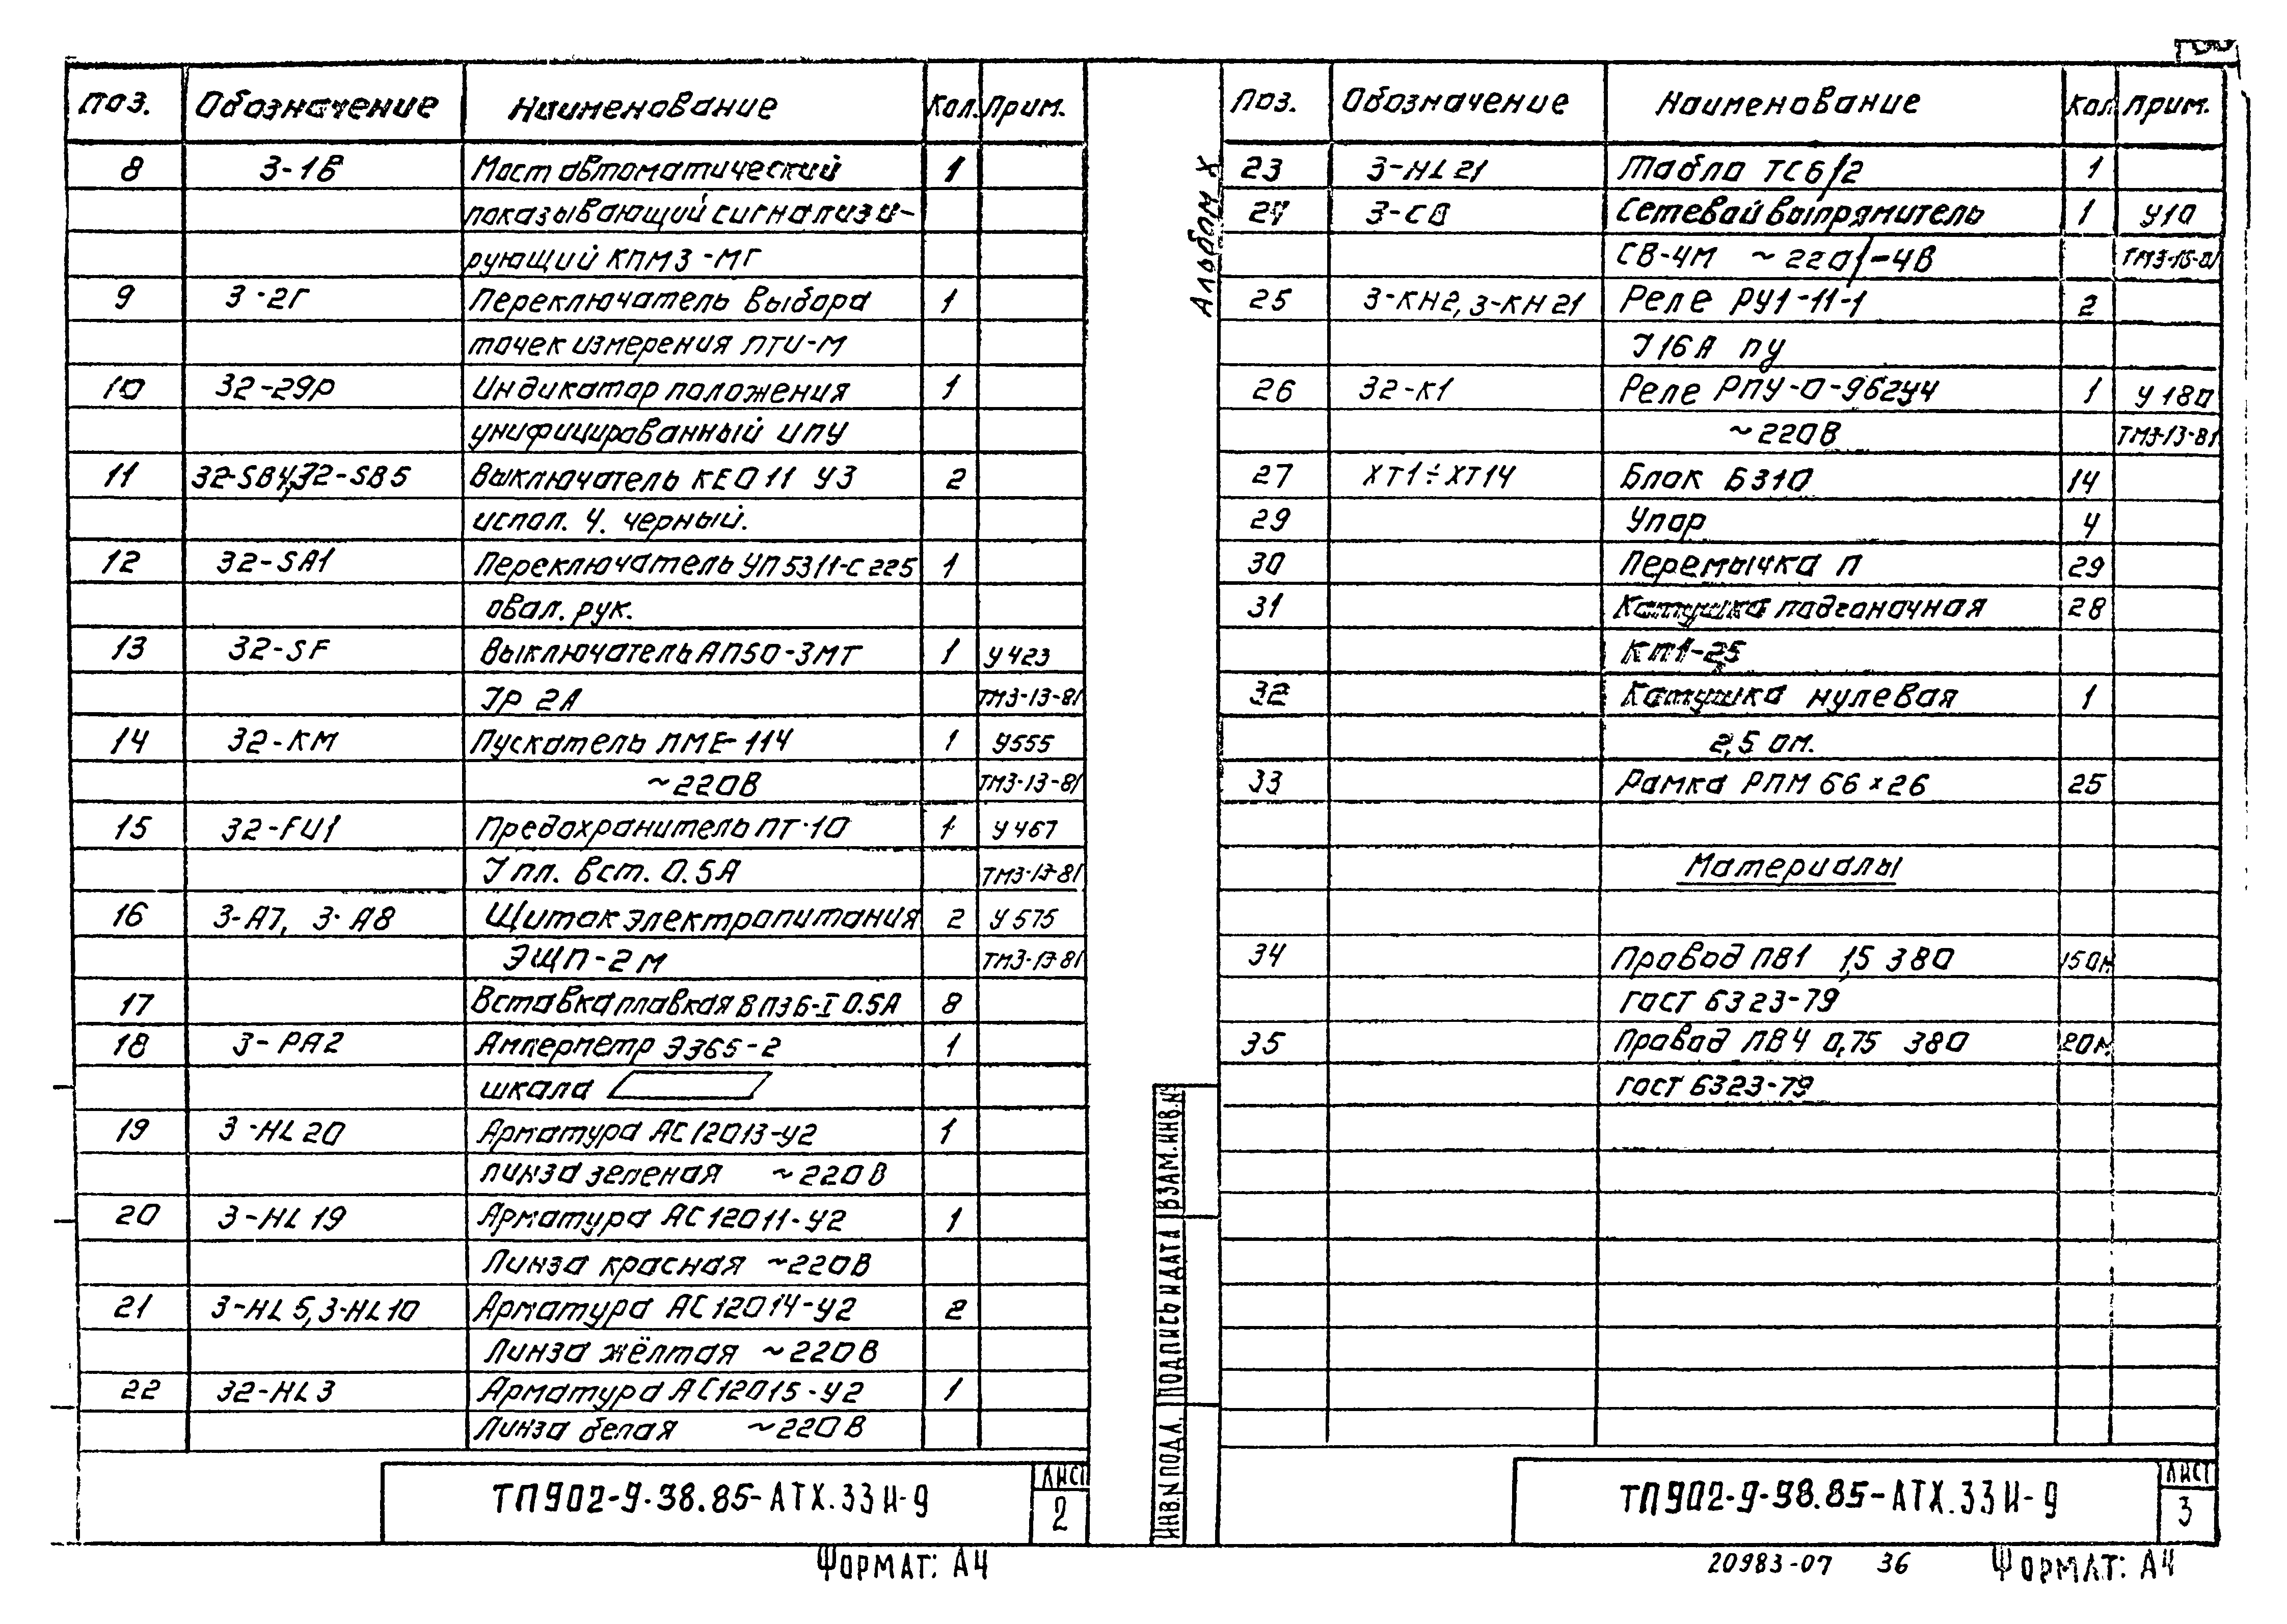 Поз. Обозначение Наименование Кол. Прим.
8 3-1в Мост автоматический 1
показывающий сигнализи-
рующий КПМ3-МГ
9 3-2г Переключатель выбора 1
точек измерения ПТИ-М
10 32-29р Индикатор положения 1
унифицированный ИПУ
11 32-SB4,32-SB5 Выключатель КЕ011 У3 2
испол. 4. черный.
12 32-SA1 Переключатель УП5311-С225 1
овал. рук.
13 32-SF Выключатель АП50-3МТ 1 У423
Jр 2А ТМ3-13-81
14 32-КМ Пускатель ПМЕ-114 1 У555
~220В ТМ3-13-81
15 32-FU1 Предохранитель ПТ-10 1 У467
J пл. вст. 0.5А ТМ3-13-81
16 3-А7, 3-А8 Щиток электропитания 2 У575
ЭЩП-2м ТМ3-13-81
17 Вставка плавкая ВП3Б-I 0.5А 8
18 3-РА2 Амперметр Э365-2 1
шкала
19 3-HL20 Арматура АС12013-У2 1
линза зеленая ~220В
20 3-HL19 Арматура АС12011-У2 1
Линза красная ~220В
21 3-HL5,3-HL10 Арматура АС12014-У2 2
Линза жёлтая ~220В
22 32-HL3 Арматура АС12015-У2 1
Линза белая ~220В
ТП902-9-38.85-АТХ.33И-9
Лист
2
Формат: А4
Альбом X
Поз. Обозначение Наименование Кол Прим.
23 3-HL21 Табло ТСб/2 1
24 3-СВ Сетевой выпрямитель 1 У10
СВ-4М ~220/-4В
25 3-КН2, 3-КН21 Реле РУ1-11-1 2
J 16А ПУ
26 32-К1 Реле РПУ-0-96244 1 У180
~220В ТМ3-13-81
27 ХТ1÷ХТ14 Блок Б310 14
29 Упор 4
30 Перемычка П 29
31 Катушка подгоночная 28
КП1-25
32 Катушка нулевая 1
2,5 ом.
33 Рамка РПМ 66×26 25
Материалы
34 Провод ПВ1 1,5 380 150м
ГОСТ 6323-79
35 Провод ПВ4 0,75 380 20м.
ГОСТ 6323-79
ИНВ.N ПОДЛ. ПОДПИСЬ И ДАТА ВЗАМ.ИНВ.N
ТП902-9-38.85-АТХ.33И-9
Лист
3
20983-07 36 Формат: А4